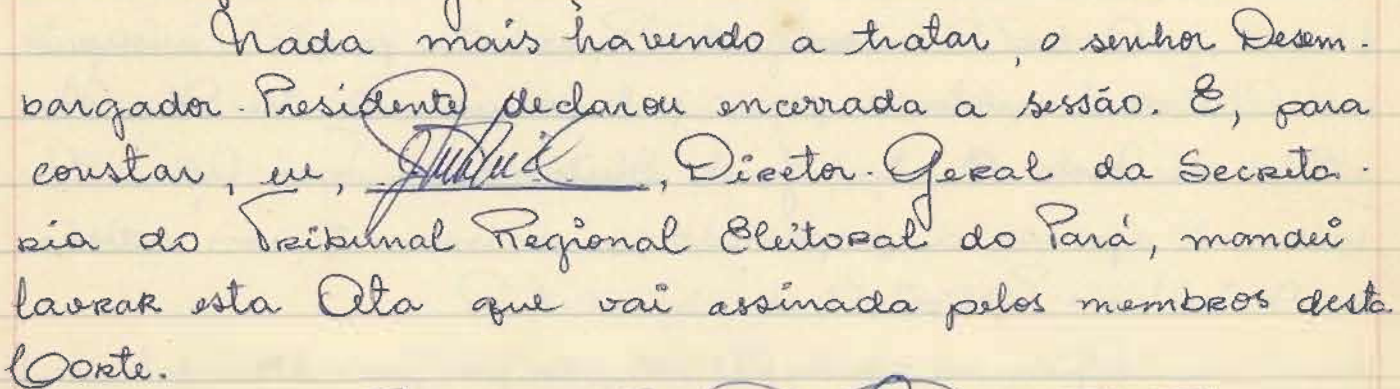 Nada mais havendo a tratar, o senhor Desem-
bargador-Presidente declarou encerrada a sessão. E, para
constar, eu, , Diretor-Geral da Secreta-
ria do Tribunal Regional Eleitoral do Pará, mandei
lavrar esta Ata que vai assinada pelos membros desta
Corte.